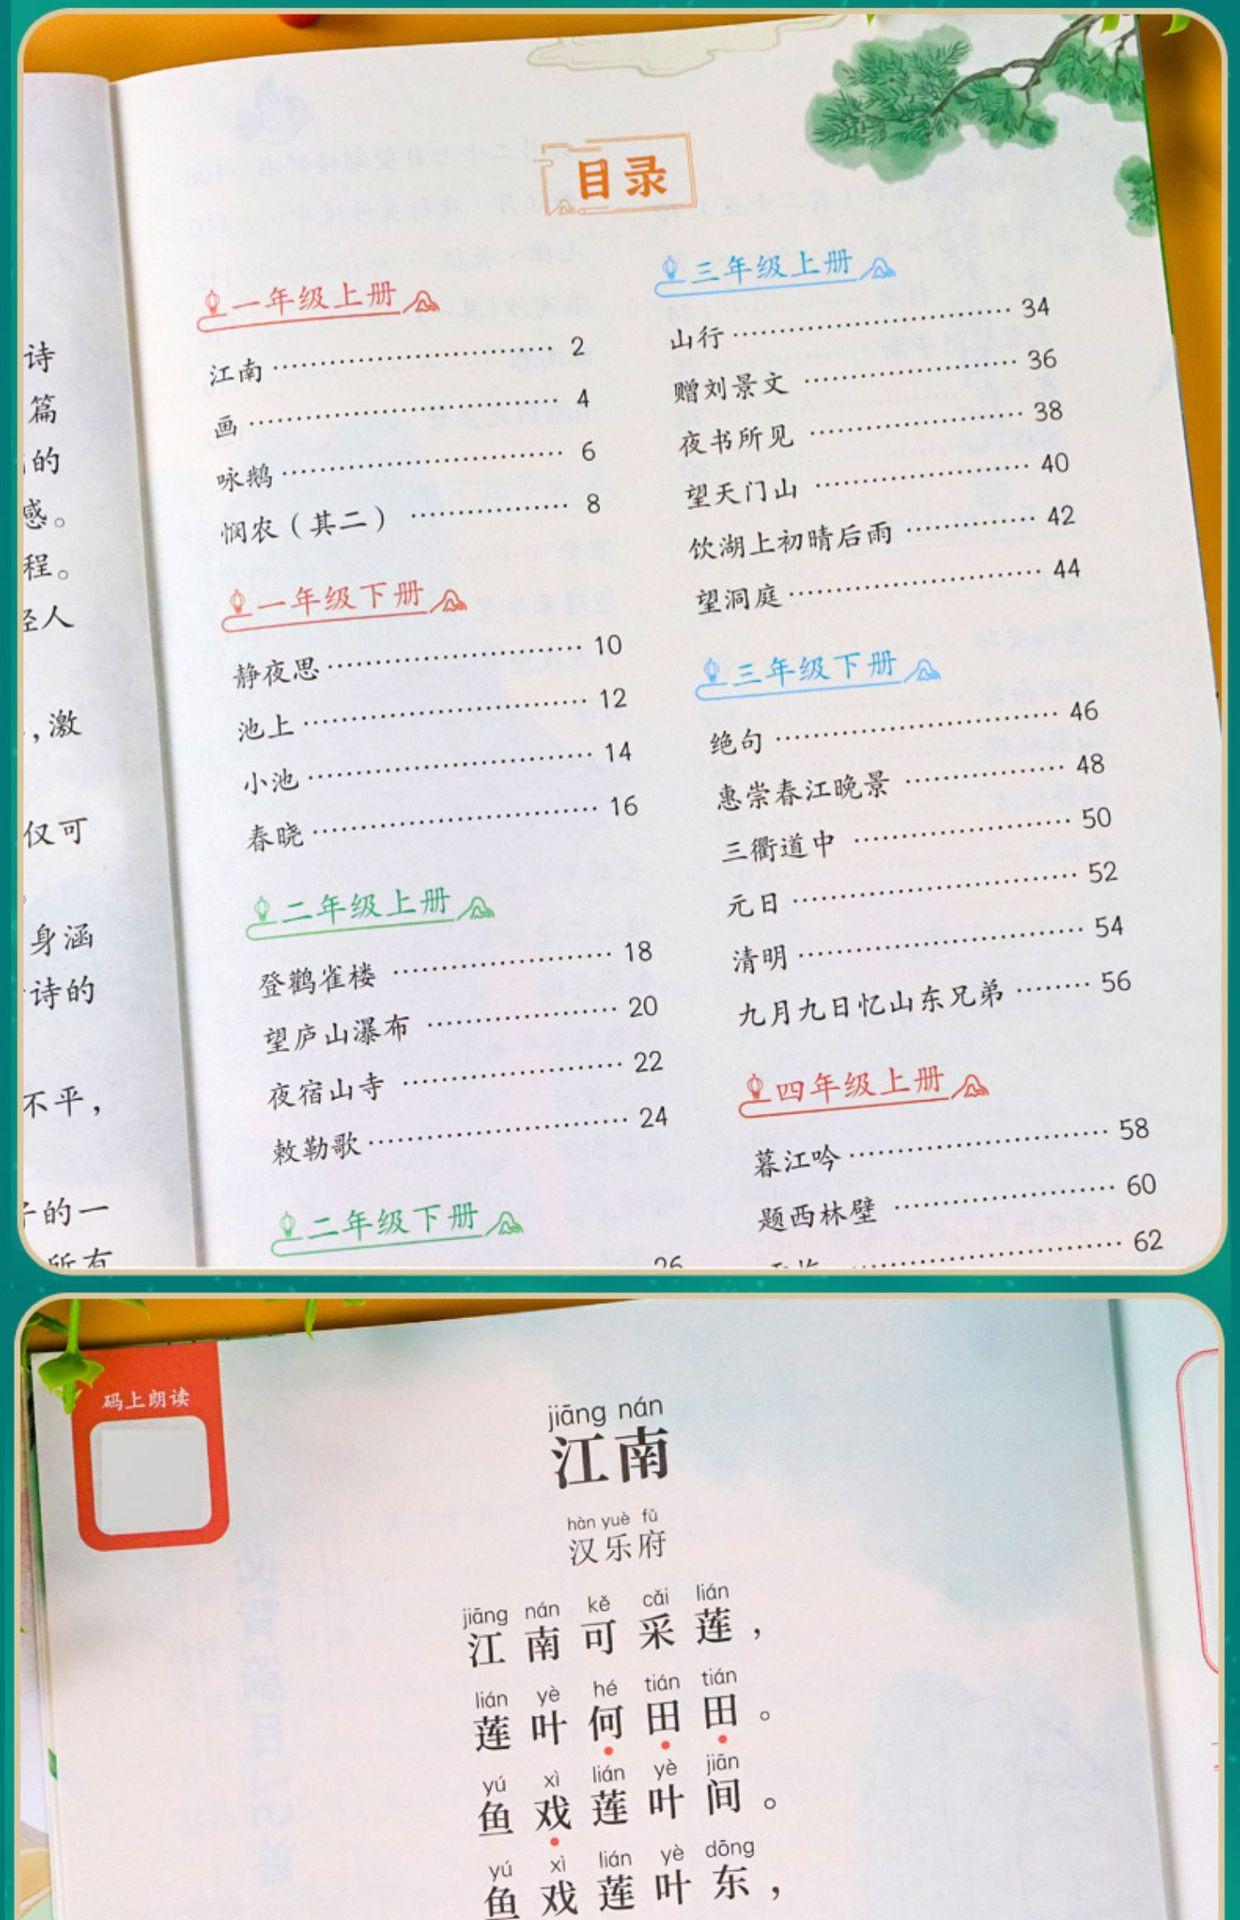 诗
篇
的
感。
程。
人
，激
仅可
身涵
诗的
不平，
的一
所有
目录
一年级上册
江南 2
画 4
咏鹅 6
悯农（其二） 8
一年级下册
静夜思 10
池上 12
小池 14
春晓 16
二年级上册
登鹳雀楼 18
望庐山瀑布 20
夜宿山寺 22
敕勒歌 24
二年级下册
26
三年级上册
山行 34
赠刘景文 36
夜书所见 38
望天门山 40
饮湖上初晴后雨 42
望洞庭 44
三年级下册
绝句 46
惠崇春江晚景 48
三衢道中 50
元日 52
清明 54
九月九日忆山东兄弟 56
四年级上册
暮江吟 58
题西林壁 60
62
码上朗读
jiāng nán
江南
hàn yuè fǔ
汉乐府
jiāng nán kě cǎi lián
江南可采莲，
lián yè hé tián tián
莲叶何田田。
yú xì lián yè jiān
鱼戏莲叶间。
yú xì lián yè dōng
鱼戏莲叶东，